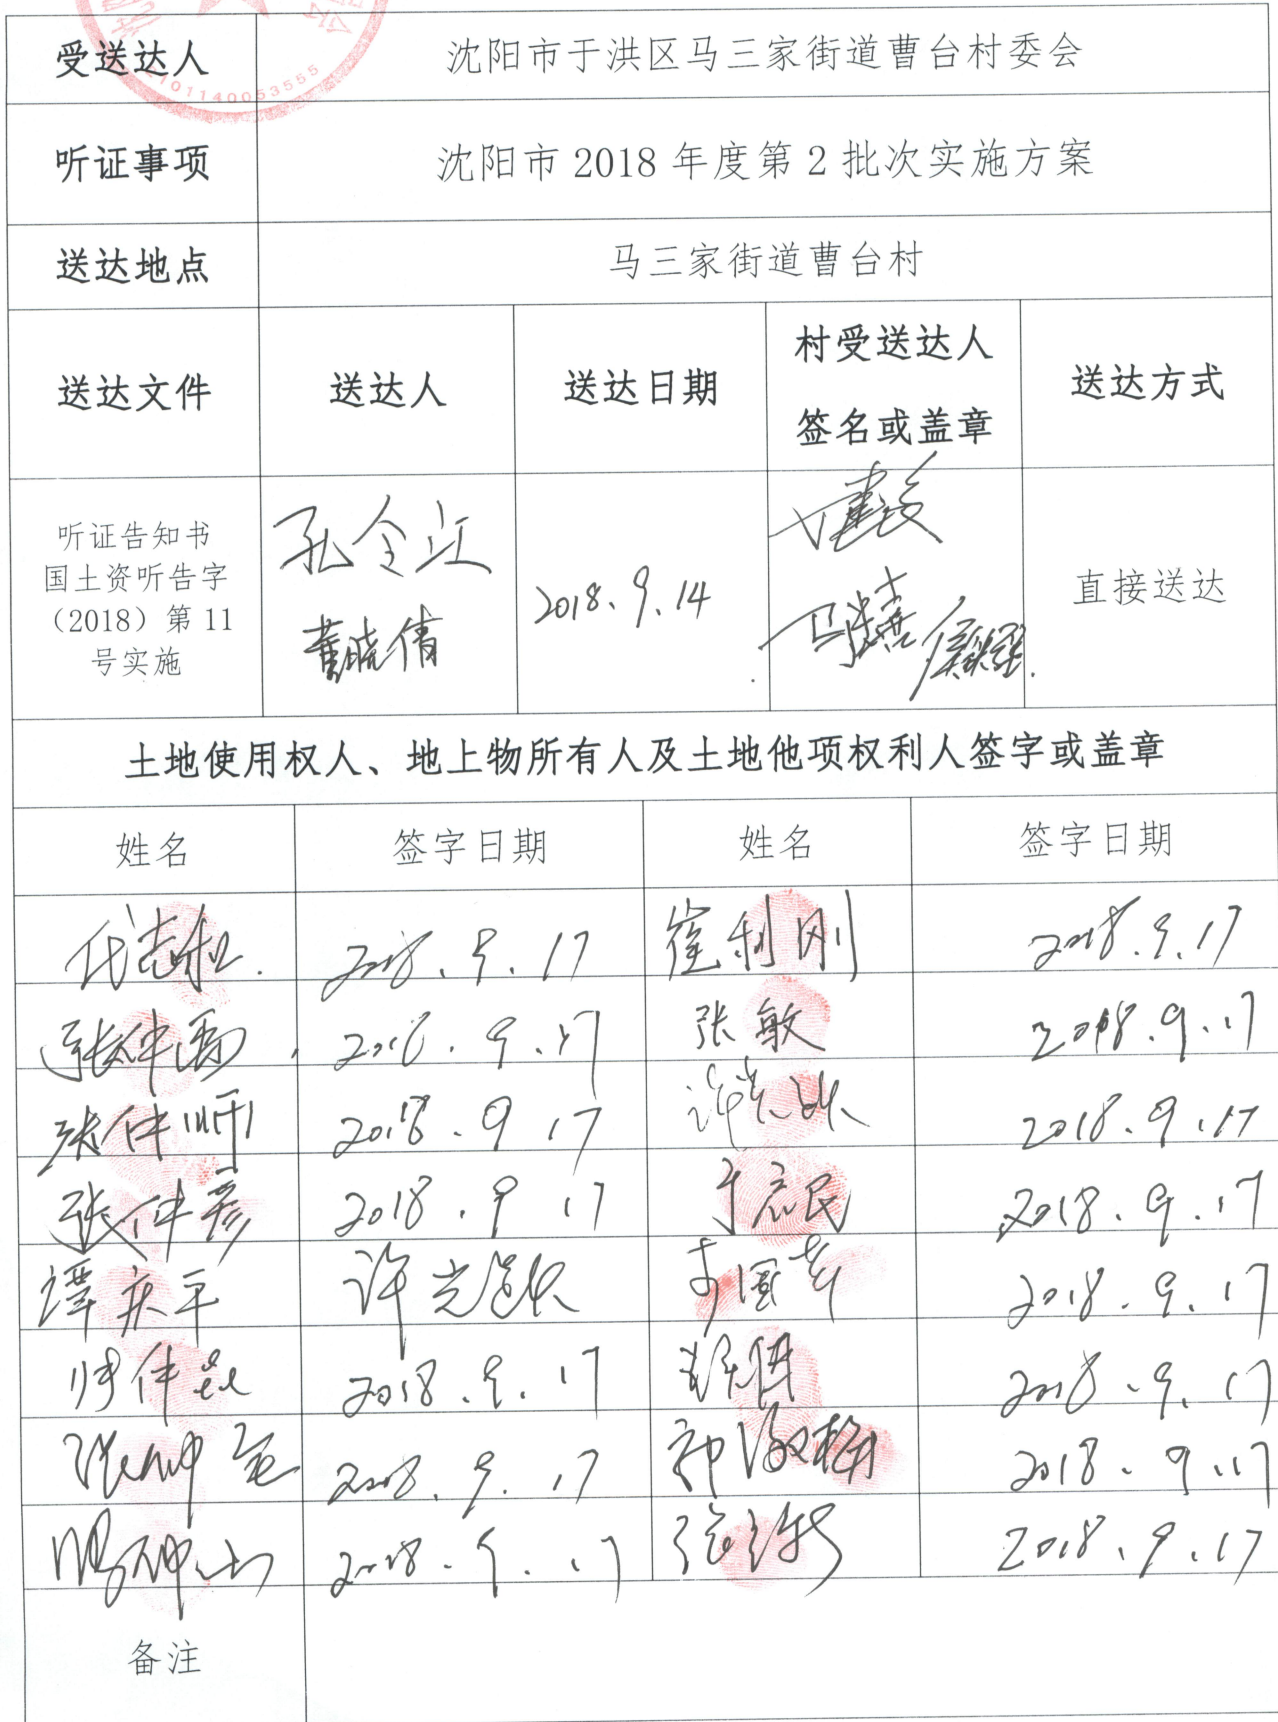 2101140053555
受送达人 沈阳市于洪区马三家街道曹台村委会
听证事项 沈阳市 2018 年度第 2 批次实施方案
送达地点 马三家街道曹台村
送达文件 送达人 送达日期 村受送达人 签名或盖章 送达方式
听证告知书
国土资听告字
（2018）第 11
号实施
孔令江
董晓倩
2018.9.14
直接送达
土地使用权人、地上物所有人及土地他项权利人签字或盖章
姓名 签字日期 姓名 签字日期
2018.9.17 崔利刚 2018.9.17
2018.9.17 张敏 2018.9.17
张仲师 2018.9.17 2018.9.17
张仲彦 2018.9.17 于庶民 2018.9.17
谭庆平 2018.9.17
2018.9.17 2018.9.17
2018.9.17 郭淑梅 2018.9.17
2018.9.17 2018.9.17
备注